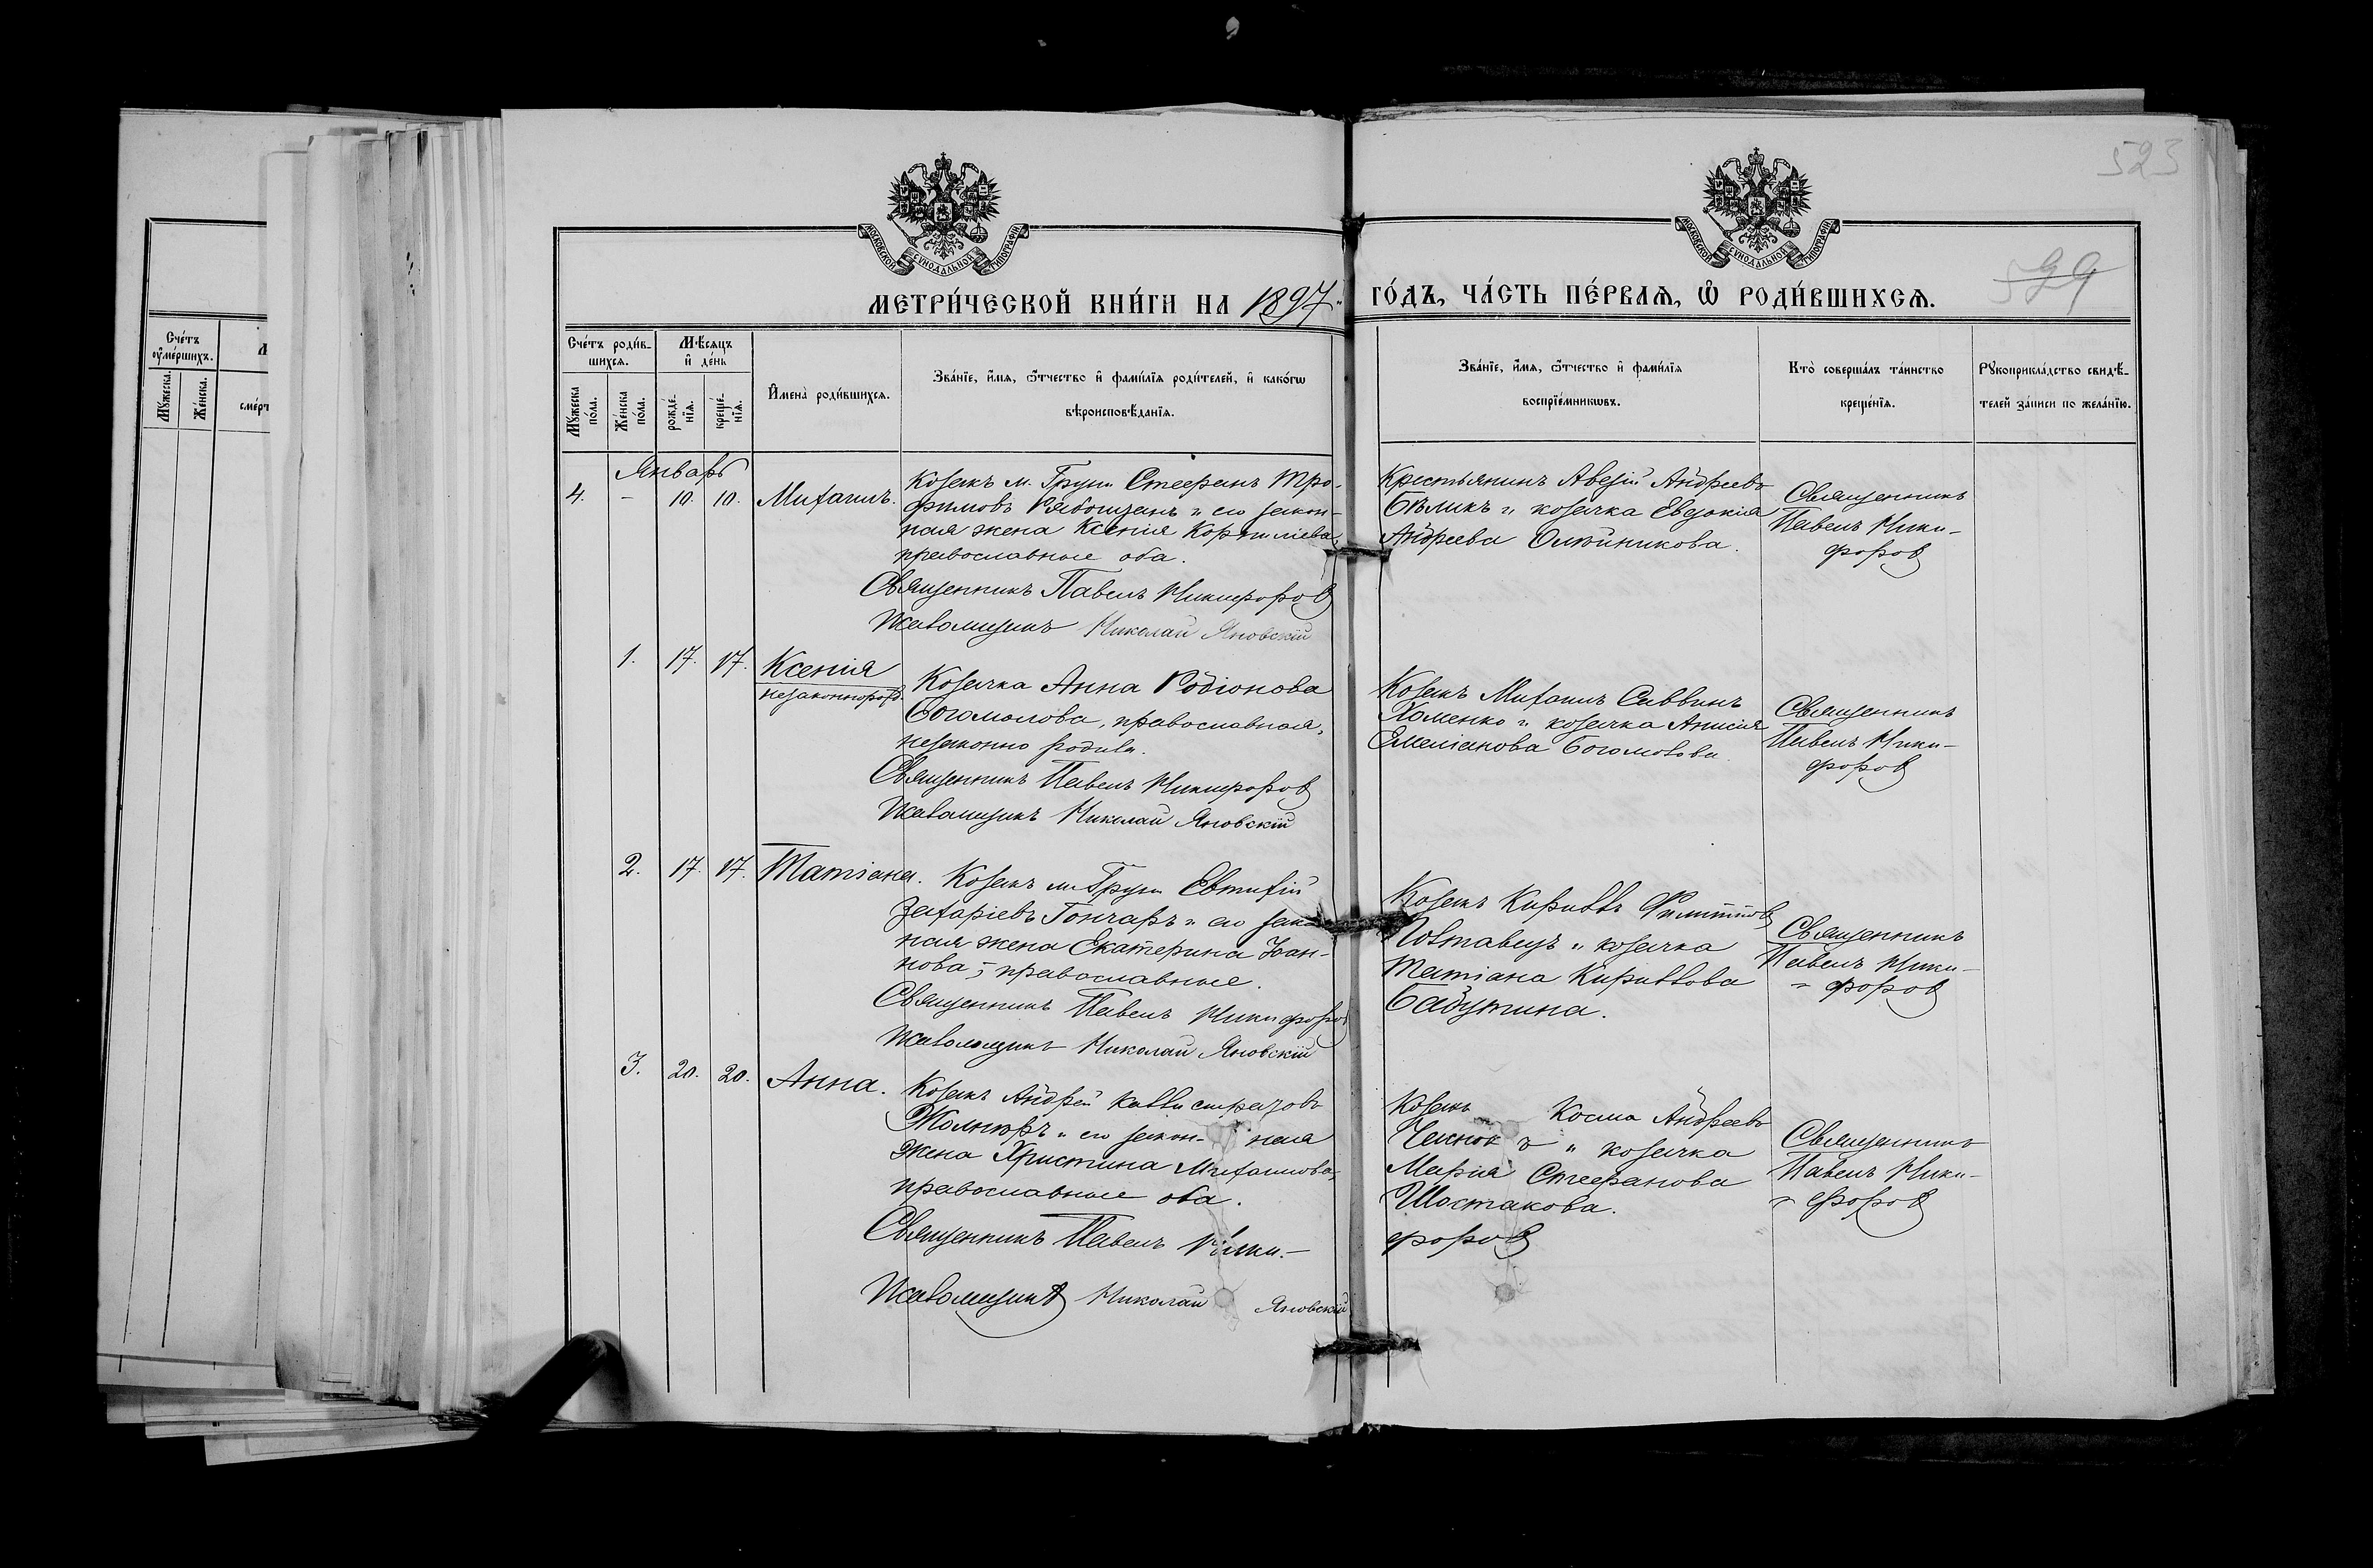 523
599
МОСКОВСКОЙ СУНОДАЛЬНОЙ ТИПОГРАФІИ
МОСКОВСКОЙ СУНОДАЛЬНОЙ ТИПОГРАФІИ
МЕТРИ́ЧЕСКОЙ КНИ́ГИ НА 1897 ГО́ДЪ, ЧА́СТЬ ПЕ́РВАѦ, Ѡ РОДИ́ВШИХСѦ.
Сче́тъ оумершихъ.
Мꙋжеска.
Же́нска.
Сче́тъ роди́вшихсѧ.
Мꙋжеска по́ла.
Же́нска по́ла.
Мѣ́сѧцъ и҆ де́нь
рожде́нїѧ.
креще́нїѧ.
И҆мена̀ роди́вшихсѧ.
Зва́нїе, и҆́мѧ, ѻ҆́тчество и҆ фами́лїѧ роди́телей, и҆ како́гѡ
вѣроисповѣ́данїѧ.
Зва́нїе, и҆́мѧ, ѻ҆́тчество и҆ фами́лїѧ
воспрїе́мникѡвъ.
Кто̀ соверша́лъ та́инство
креще́нїѧ.
Рꙋкоприкла́дство свидѣ́-
телей за́писи по жела́нїю.
Январь
4. – 10. 10. Михаилъ.
Козакъ м. Груни Стефанъ Тро-
фимовъ Рябощанъ и его закон-
ная жена Ксенія Корнилиева,
православные оба.
Священникъ Павелъ Никифоровъ
Псаломщикъ Николай Яновскій
Крестьянинъ Андреевъ
Бѣликъ и козачка Евдокія
Андреева Олейникова.
Священникъ
Павелъ Ники-
форовъ
1. 17. 17. Ксенія
незаконнорожд.
Козачка Анна Родіонова
Богомолова, православная,
незаконно родила.
Священникъ Павелъ Никифоровъ
Псаломщикъ Николай Яновскій
Козакъ Михаилъ Саввинъ
Хоменко и козачка Анисія
Емеліанова Богомолова
Священникъ
Павелъ Ники-
форовъ
2. 17. 17. Татіана.
Козакъ м. Груни Евтихій
Захаріевъ Гончаръ и его закон
ная жена Екатерина Іоан-
нова, православные.
Священникъ Павелъ Никифоровъ
Псаломщикъ Николай Яновскій
Козакъ Кириллъ Филипповъ
Полтавецъ и козачка
Татіана Кириллова
Бабутина.
Священникъ
Павелъ Ники-
форовъ
3. 20. 20. Анна.
Козакъ Андрей Каллистратовъ
Жолнюръ и его закон- ная
жена Христина Михаилова,
православные оба.
Священникъ Павелъ Ники-
форовъ
Псаломщикъ Николай Яновскій
Козакъ Косма Андреевъ
и козачка
Марія Стефанова
Шостакова.
Священникъ
Павелъ Ники-
форовъ